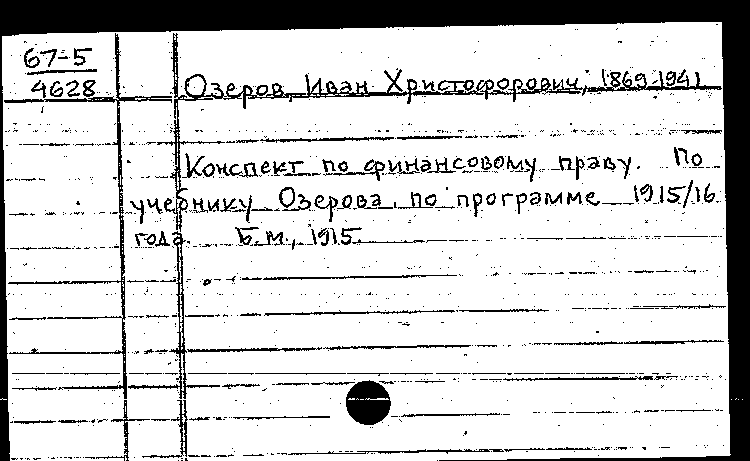 67-5
4628
Озеров, Иван Христофорович, 1869-1941
Конспект по финансовому праву. По
учебнику Озерова по программе 1915/16
года. Б.м., 1915.